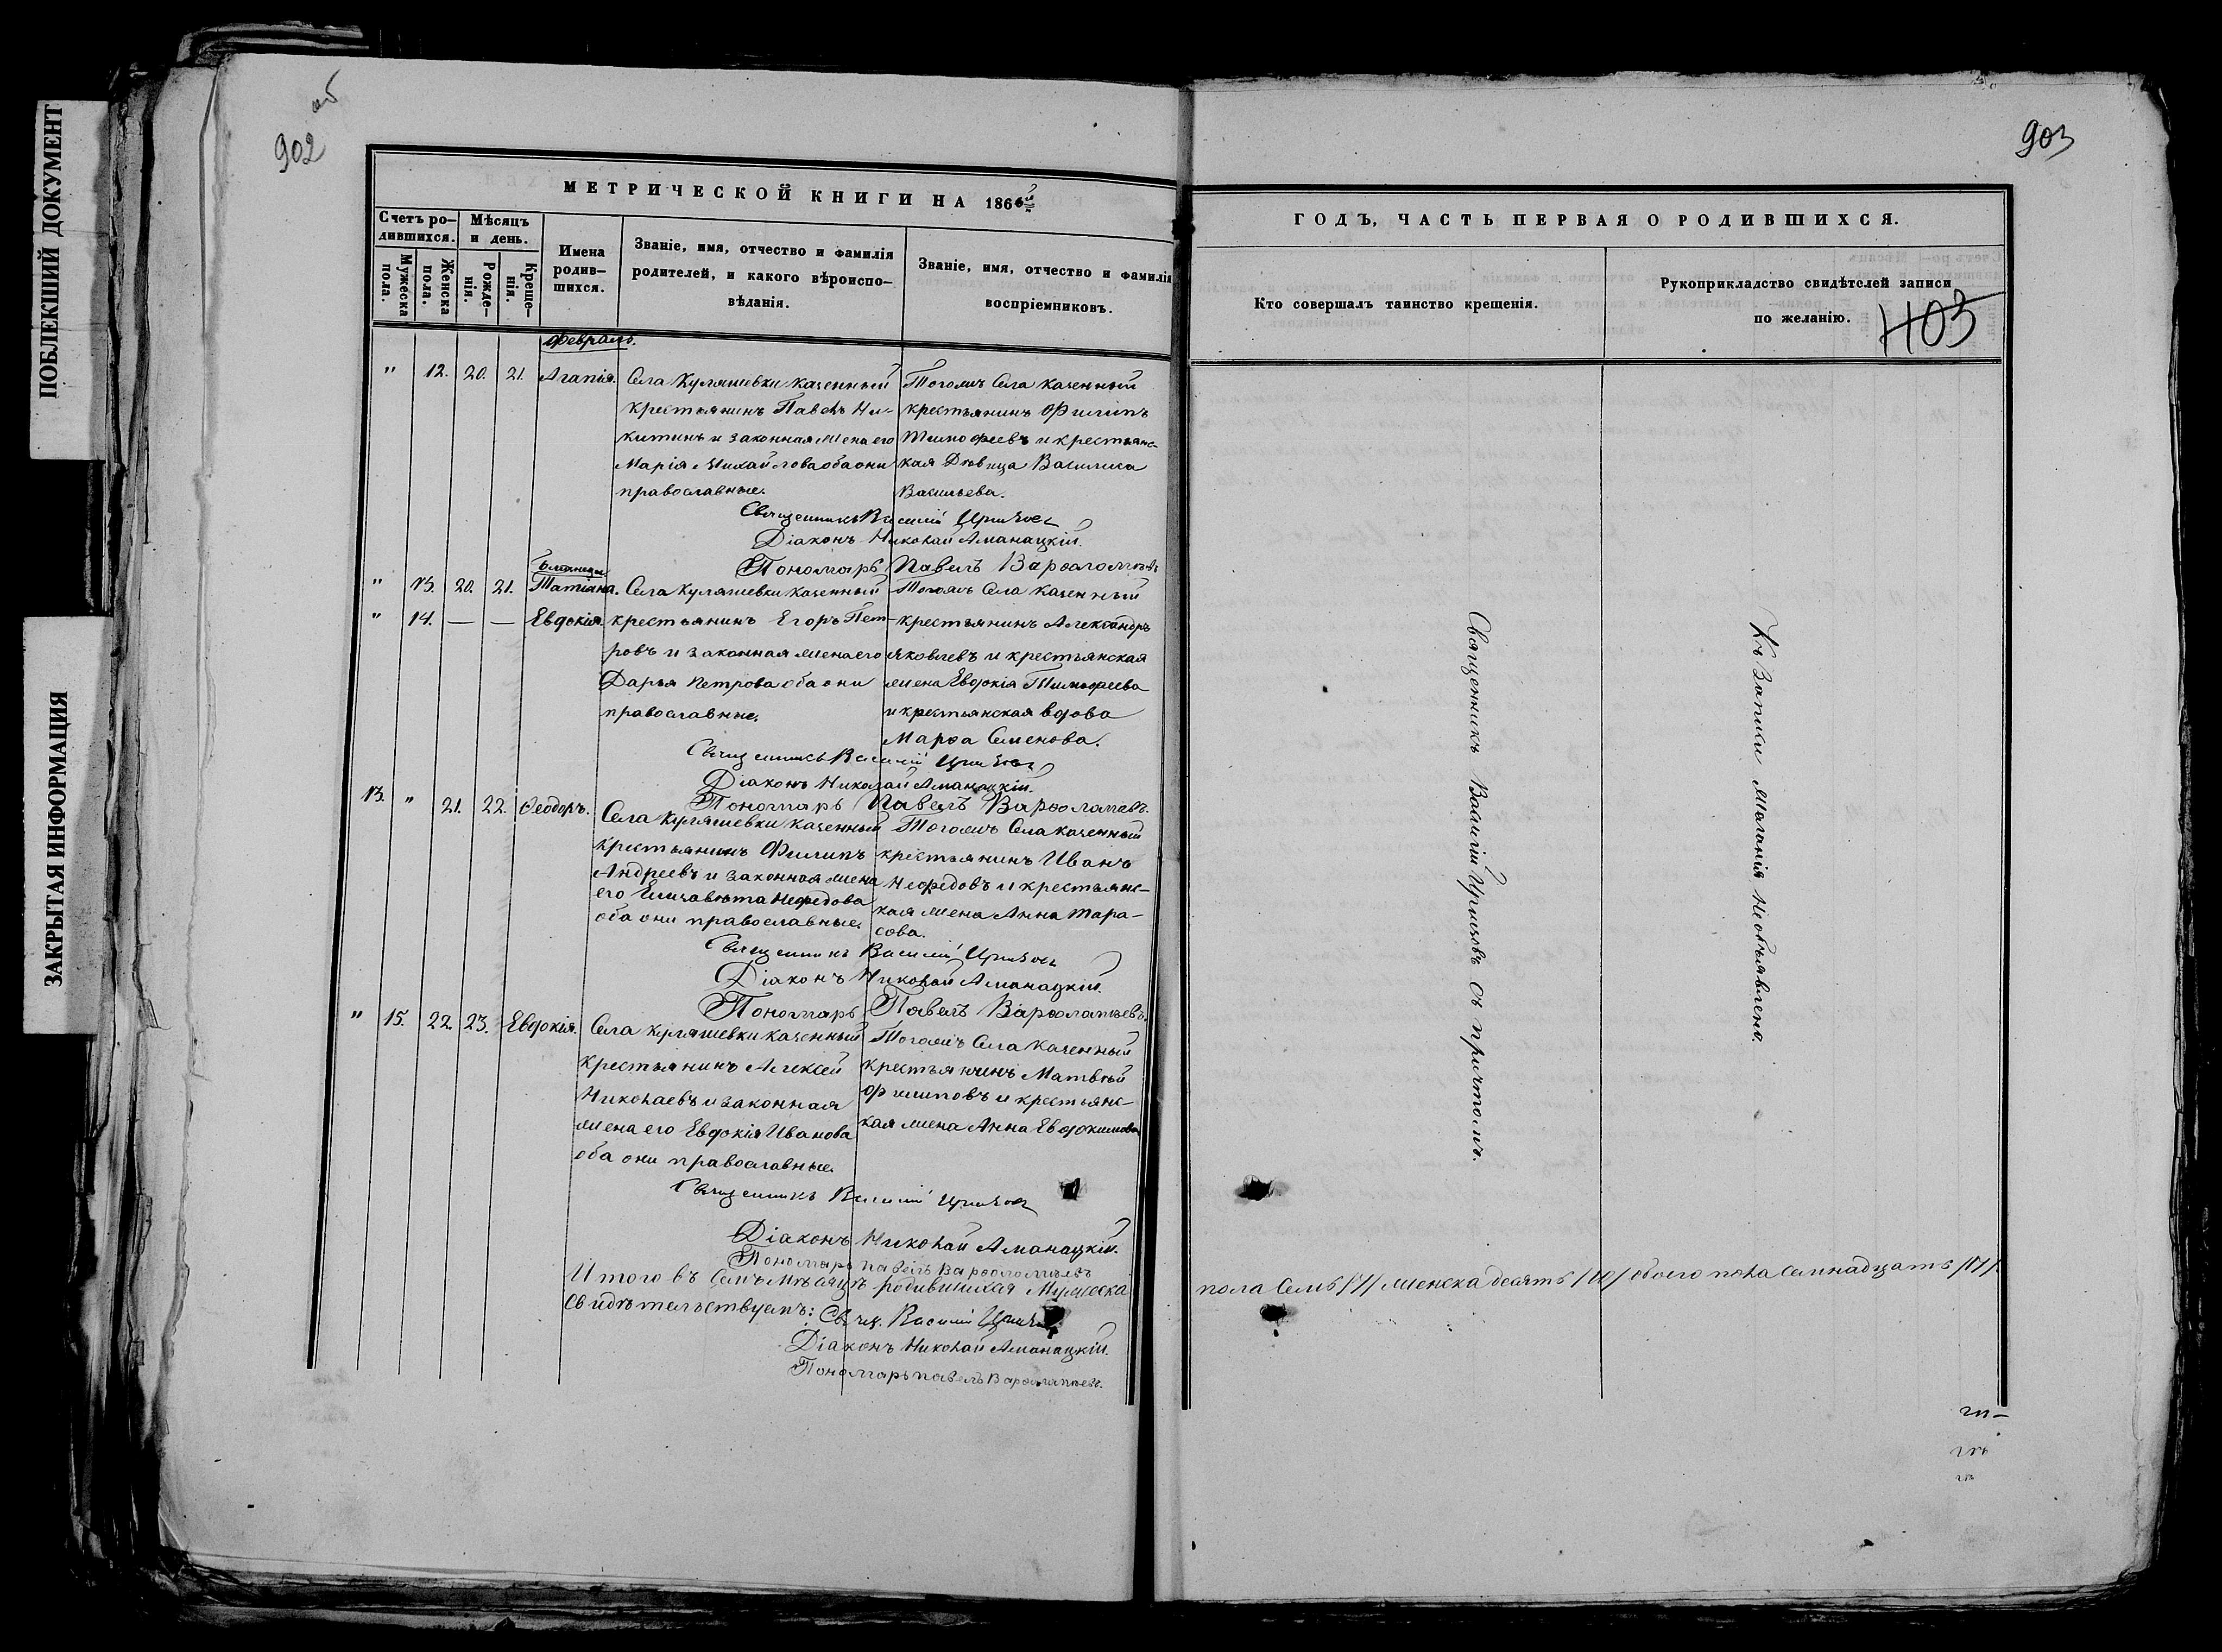 ПОБЛЕКШИЙ ДОКУМЕНТ
ЗАКРЫТАЯ ИНФОРМАЦИЯ
об
902
МЕТРИЧЕСКОЙ КНИГИ НА 1866й
Счетъ ро-
дившихся.
Мужеска
пола.
Женска
пола.
Мѣсяцъ
и день.
Рожде-
нія.
Креще-
нія.
Имена
родив-
шихся.
Званіе, имя, отчество и фамилія
родителей, и какого вѣроиспо-
вѣданія.
Званіе, имя, отчество и фамилія
воспріемниковъ.
Февраль.
" 12. 20. 21. Агапія.
Села Куляшевки казенный
крестьянинъ Павелъ Ни-
китинъ и законная жена его
Марія Михайлова оба они
православные.
Тогожъ Села казенный
крестьянинъ Филипъ
Тимофеевъ и крестьянс-
кая Дѣвица Василиса
Васильева.
Священникъ Василій
Діаконъ Николай Аманацкій.
Пономарь Павелъ Варѳоломѣевъ
Близнецы
" 13. 20. 21. Татіана.
" 14. — — Евдокія.
Села Куляшевки казенный
крестьянинъ Егоръ Пет-
ровъ и законная жена его
Дарья Петрова оба они
православные.
Тогожъ Села казенный
крестьянинъ Александръ
Яковлевъ и крестьянская
жена Евдокія Тимофеева
и крестьянская вдова
Марѳа Семенова.
Священникъ Василій
Діаконъ Николай Аманацкій.
Пономарь Павелъ Варѳоламѣевъ.
13. " 21. 22. Ѳеодоръ.
Села Куляшевки казенный
крестьянинъ Филипъ
Андреевъ и законная жена
его Елизавѣта Нефедова
оба они православные.
Тогожъ Села казенный
крестьянинъ Иванъ
Нефедовъ и крестьянс-
кая жена Анна Тара-
сова.
Священникъ Василій
Діаконъ Николай Аманацкій.
Пономарь Павелъ Варѳоламѣевъ.
" 15. 22. 23. Евдокія.
Села Куляшевки казенный
крестьянинъ Алексей
Николаевъ и законная
жена его Евдокія Иванова
оба они православные.
Тогожъ Села казенный
крестьянинъ Матвѣй
Филиповъ и крестьянс-
кая жена Анна Евдокимова
Священникъ Василій
Діаконъ Николай Аманацкій.
Пономарь Павелъ Варѳоломѣевъ
Итого въ Семъ мѣсяцѣ родившихся Мужеска
Свидѣтельствуемъ: Свящ. Василій
Діаконъ Николай Аманацкій.
Пономарь Павелъ Варѳоламѣевъ.
903
ГОДЪ, ЧАСТЬ ПЕРВАЯ О РОДИВШИХСЯ.
Кто совершалъ таинство крещенія.
Рукоприкладство свидѣтелей записи
по желанію.
403
Священникъ Василій съ причтомъ.
Къ Записки желанія Необъявлено.
пола Семь /7/ женска десять /10/ обоего пола Семнадцать /17/.